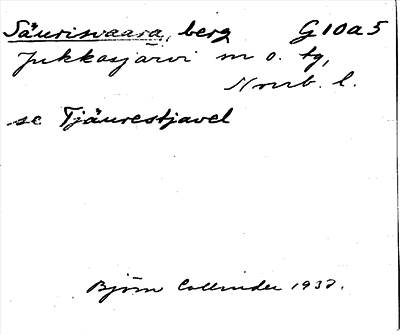 Säurisvaara, berg G10a5
Jukkasjärvi sn o. tg,
Norrb. l.
se Tjäurestjavel
Björn Collinder 1937.